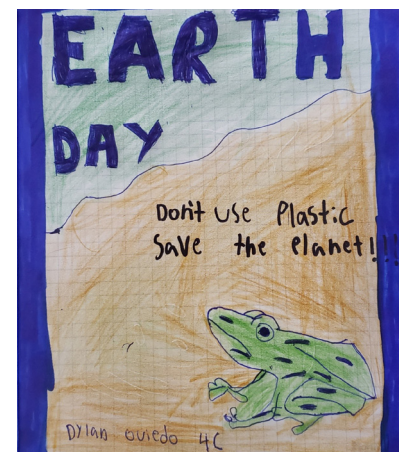 EARTH
DAY
Don't use Plastic
Save the Planet!!!
Dylan oviedo 4C